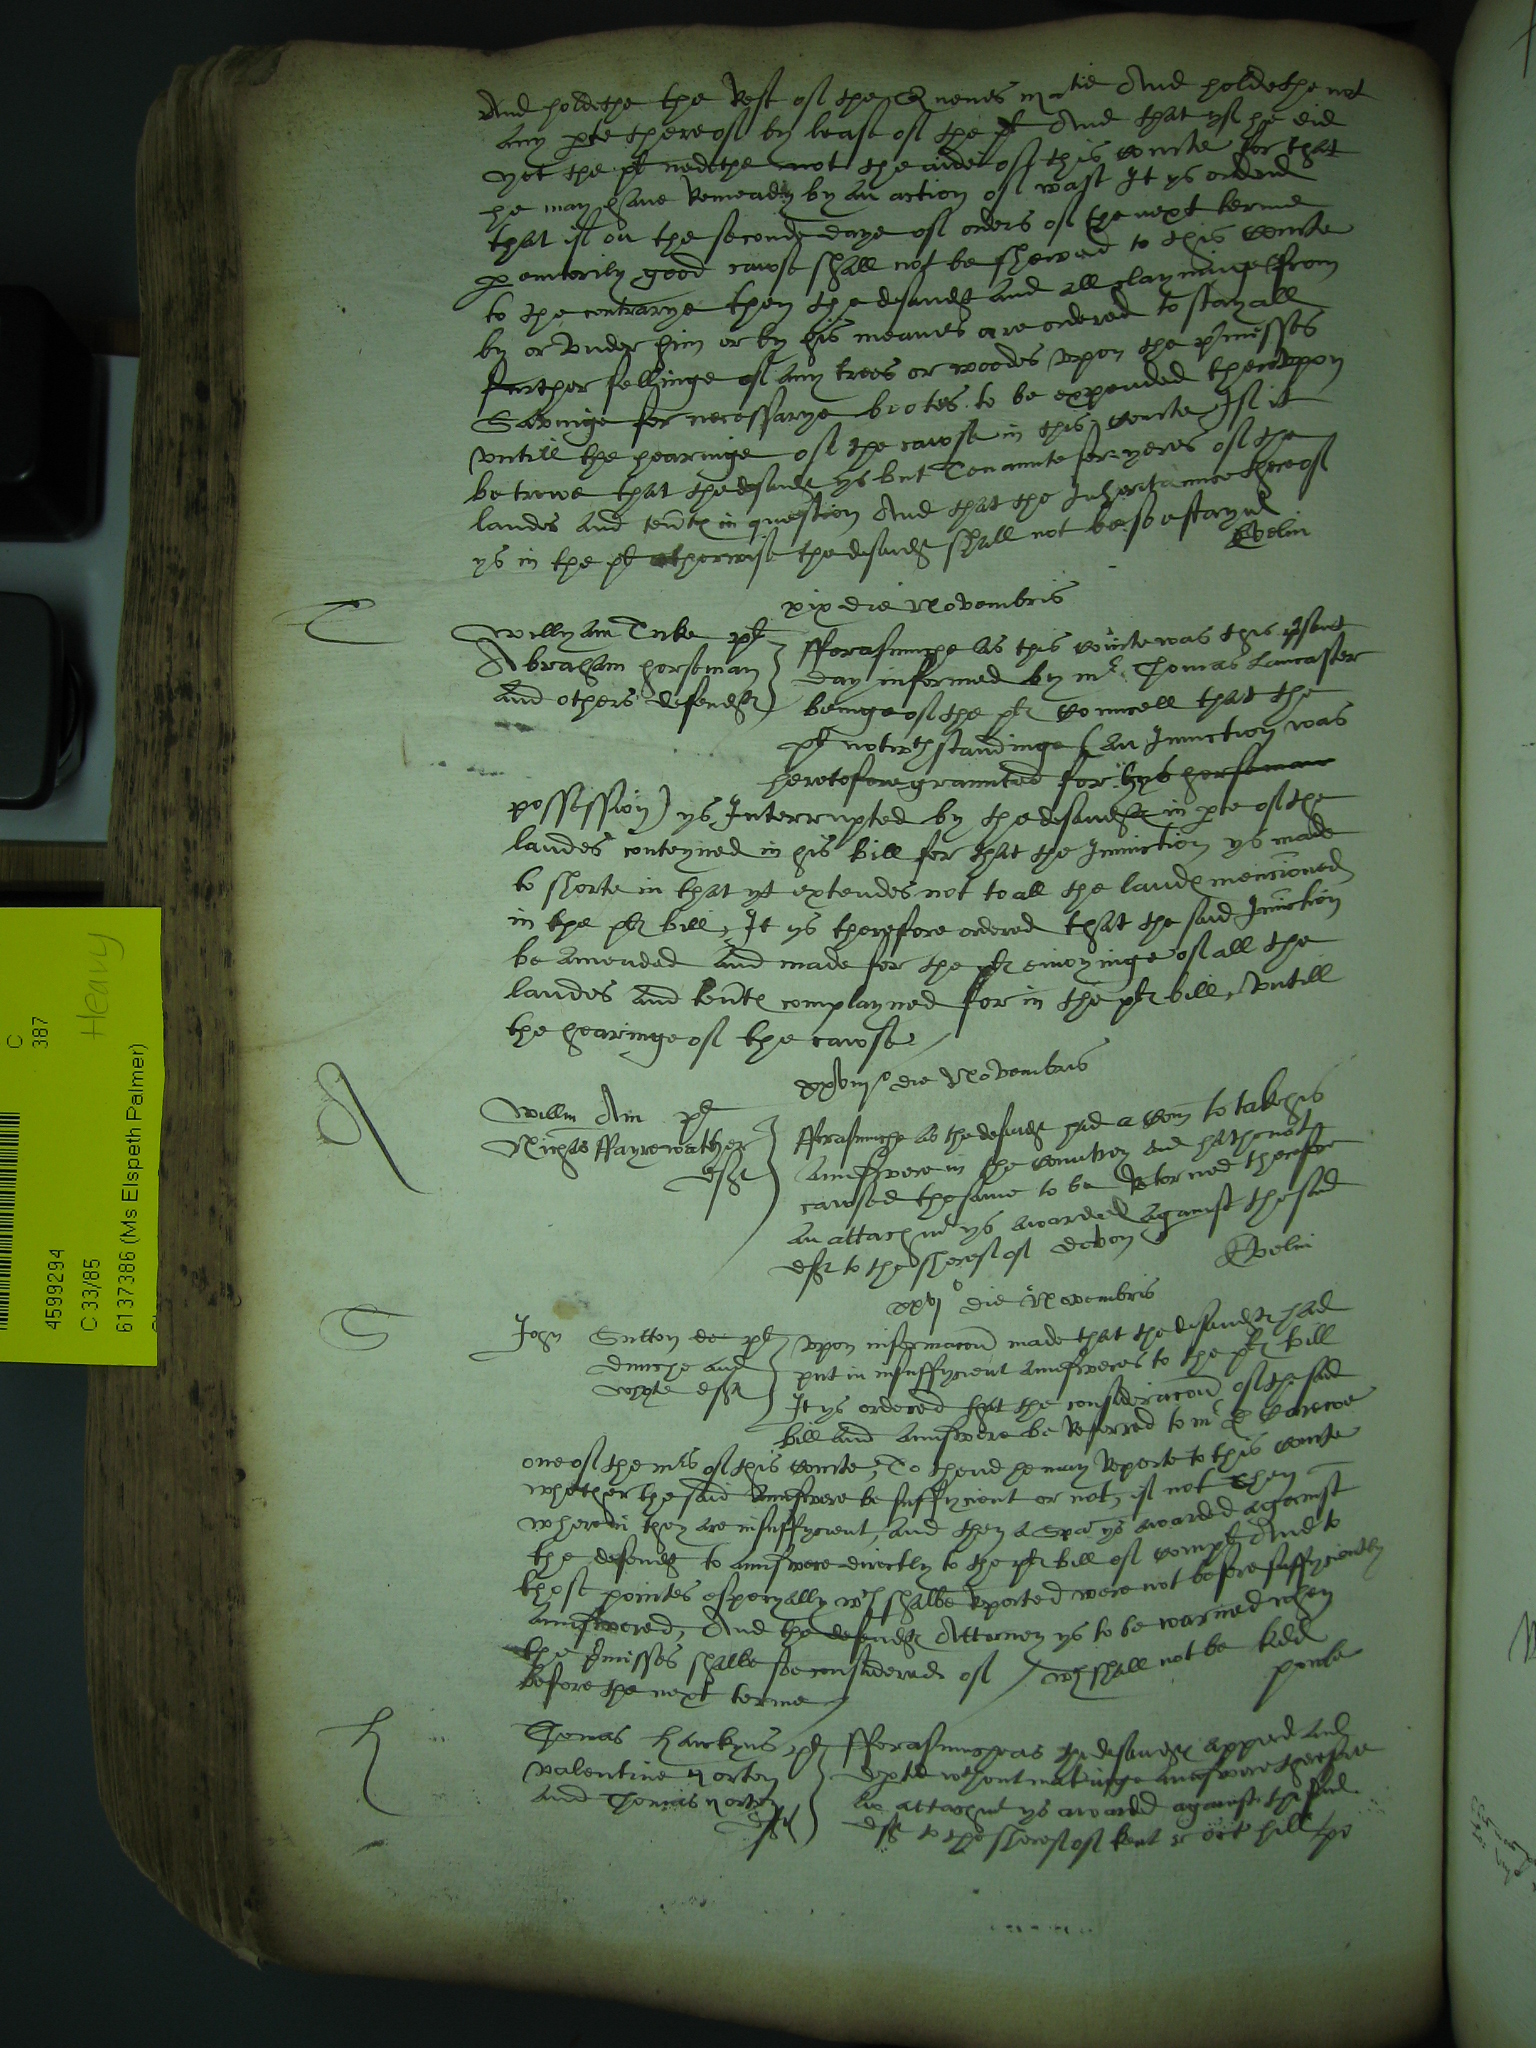 And holdethe the Rest of the Quenes matie And holdethe not
Any pte thereof by lease of the pl And that yf he did
yet the pl nedethe not the aide of this Courte for that
he may have Remeady by an action of wast It ys ordered
that if on the seconde daye of orders of the next terme
peremtorily good cawse shall not be shewed to this Courte
to the contrarye then the defendt and all claymynge from
by or under him or by his meanes are ordered to stay all
further fellinge of any trees or woodes upon the pmisses
Savinge for necessarye botes to be expended thereuppon
untill the hearinge of the cawse in this Courte If it
be trewe that the defendt ys but Tenaunte for yeres of the
landes and tents in question And that the Inheritaunce thereof
ys in the pl otherwise the defendt shall not be so stayed
Evelin
T
xix die Novembris
Willyam Tuke pl
Abraham horseman
and others defendts
fforasmuche as this courte was this psent
day informed by mr Thomas Lancaster
beinge of the pl Councell that the
pl notwthstandinge (an Iniunction was
heretofore graunted for hys horseman
possession) ys Interrupted by the defendts in pte of the
landes conteyned in his bill for that the Iniunction ys made
to shorte in that yt extendes not to all the landes mencioned
in the pl bill, It ys therefore ordered that the said Iniunction
be amended and made for the pl enioyinge of all the
landes and tents complayned for in the pl bill, untill
the hearinge of the cawse
A
xxviijo die Novembris
Willm Am pl
Nichas ffayrewather
deft
fforasmuche as the defendt had a Com to take his
aunswere in the Countrey and hathe not
cawsed the same to be Retorned therefore
an attachmt ys awarded against the said
deft to the sheref of devon
Evelin
S
xxvjo die Novembris
John Sutton de pl
dunche and
whyte defts
upon informacon made that the defendts had
put in insuffycient aunsweres to the pl bill
It ys ordered that the consideracon of the said
bill and aunswere be Referred to mr D Barcroe
one of the mrs of this Courte, To thend he may Reporte to this Courte
whether the said aunswere be suffycient or not, if not then
wherein they are insuffycient, and then a Spa ys awarded against
the defendt to aunswere directly to the pl bill of compl And to
those pointes especyally wch shalbe Reported were not before suffyciently
aunswered, And the defendts Attorney ys to be warned when
the pmisses shalbe soe considered of / wch shall not be
before the next terme
powle
H
Thomas Hawkyns pl
Valentine Norton
and Thomas Norton
defts
fforasmuche as the defendts appered and
depted wthout makinge aunswere therefore
an attachmt ys awarded against the said
deft to the sheref of kent r oct hill / po
C
387
Heavy
4599294
C 33/85
6137386 (Ms Elspeth Palmer)